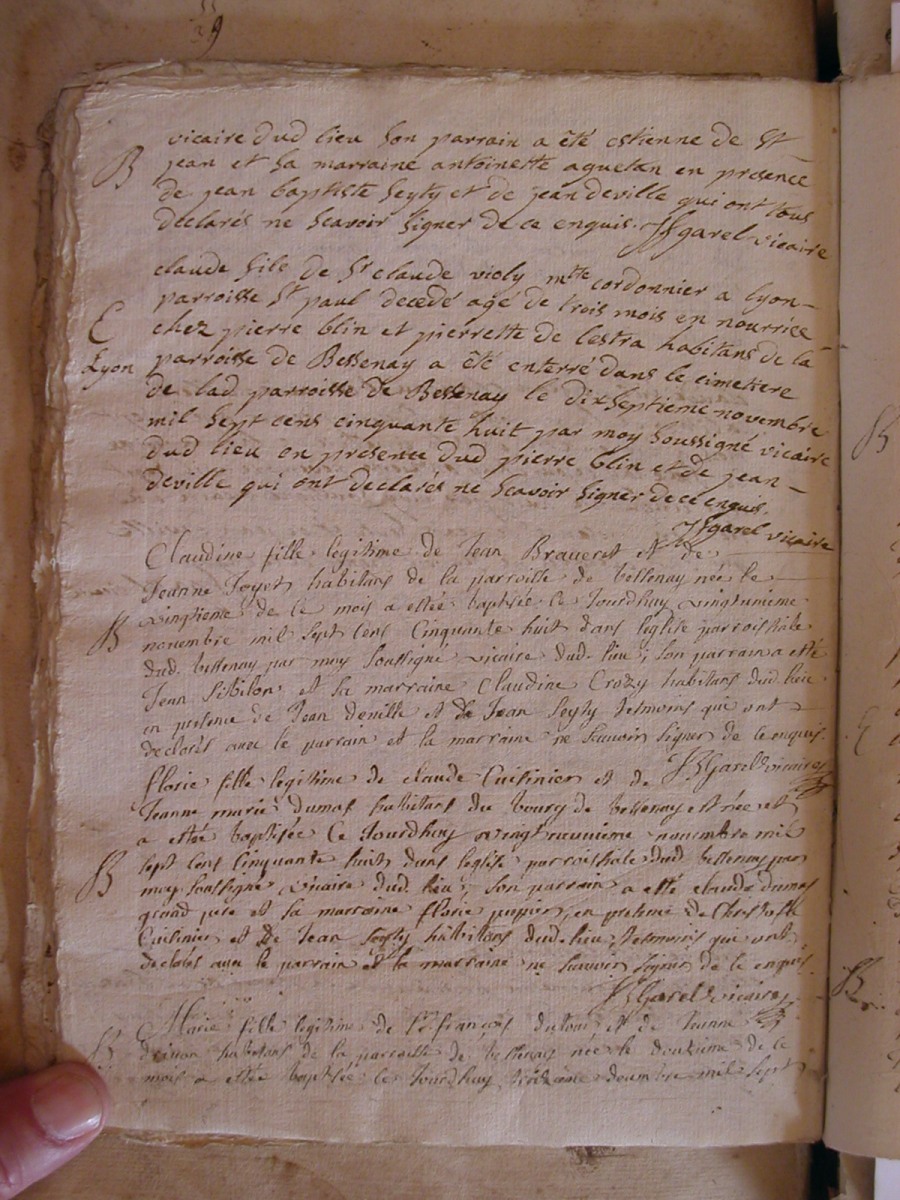 39
vicaire dud lieu son parrain a été estienne de St
B
jean et sa marraine antoinette aguetan en presence
de jean baptiste seyty et de jean deville qui ont tous
declarés ne scavoir signer de ce enquis. JBgarel vicaire
claude fils de Sr claude violy mtre cordonnier a lyon
parroisse St paul decedé agé de trois mois en nourrice
E
chez pierre blin et pierrette de lestra habitans de la
Lyon
parroisse de Bessenay a été enterré dans le cimettere
de lad parroisse de Bessenay le dix septieme novembre
mil sept cens cinquante huit par moy soussigné vicaire
dud lieu en presence dud pierre blin et de jean
deville qui ont declarés ne scavoir signer de ce enquis.
JBgarel vicaire
Claudine fille legitime de Jean Et de
Jeanne Joyet habitans de la parroisse de bessenay née le
vingtieme de ce mois a estée baptisée ce Jourdhuy vingtunieme
B
novembre mil sept cens Cinquante huit dans leglise parroissiale
dud. bessenay par moy soussigné vicaire dud. lieu; son parrain a esté
Jean Sibilon et sa marraine Claudine Crozy habitans dud. lieu
en presence de Jean deville et de Jean Seyty tesmoins qui ont
declarés avec le parrain et la marraine ne scavoir signer de ce enquis.
JBGarel vicaire
florie fille legitime de claude Cuisinier et de
Jeanne marie dumas habitans du bourg de bessenay est née et
a estée baptisée Ce Jourdhuy novembre mil
B
sept cens Cinquante huit dans leglise parroissiale dud bessenay par
moy soussigné vicaire dud. lieu; son parrain a esté claude dumas
grand pere et sa marraine florie en presence de Christophe
Cuisinier et de Jean Seyty habitans dud. lieu, tesmoins qui ont
declarés avec le parrain et la marraine ne scavoir signer de ce enquis
JBGarel vicaire
Marie fille legitime de Sr françois et de Jeanne
B
habitans de la parroisse de bessenay née le douzieme de ce
mois a estée baptisée ce Jourdhuy treizieme decembre mil sept